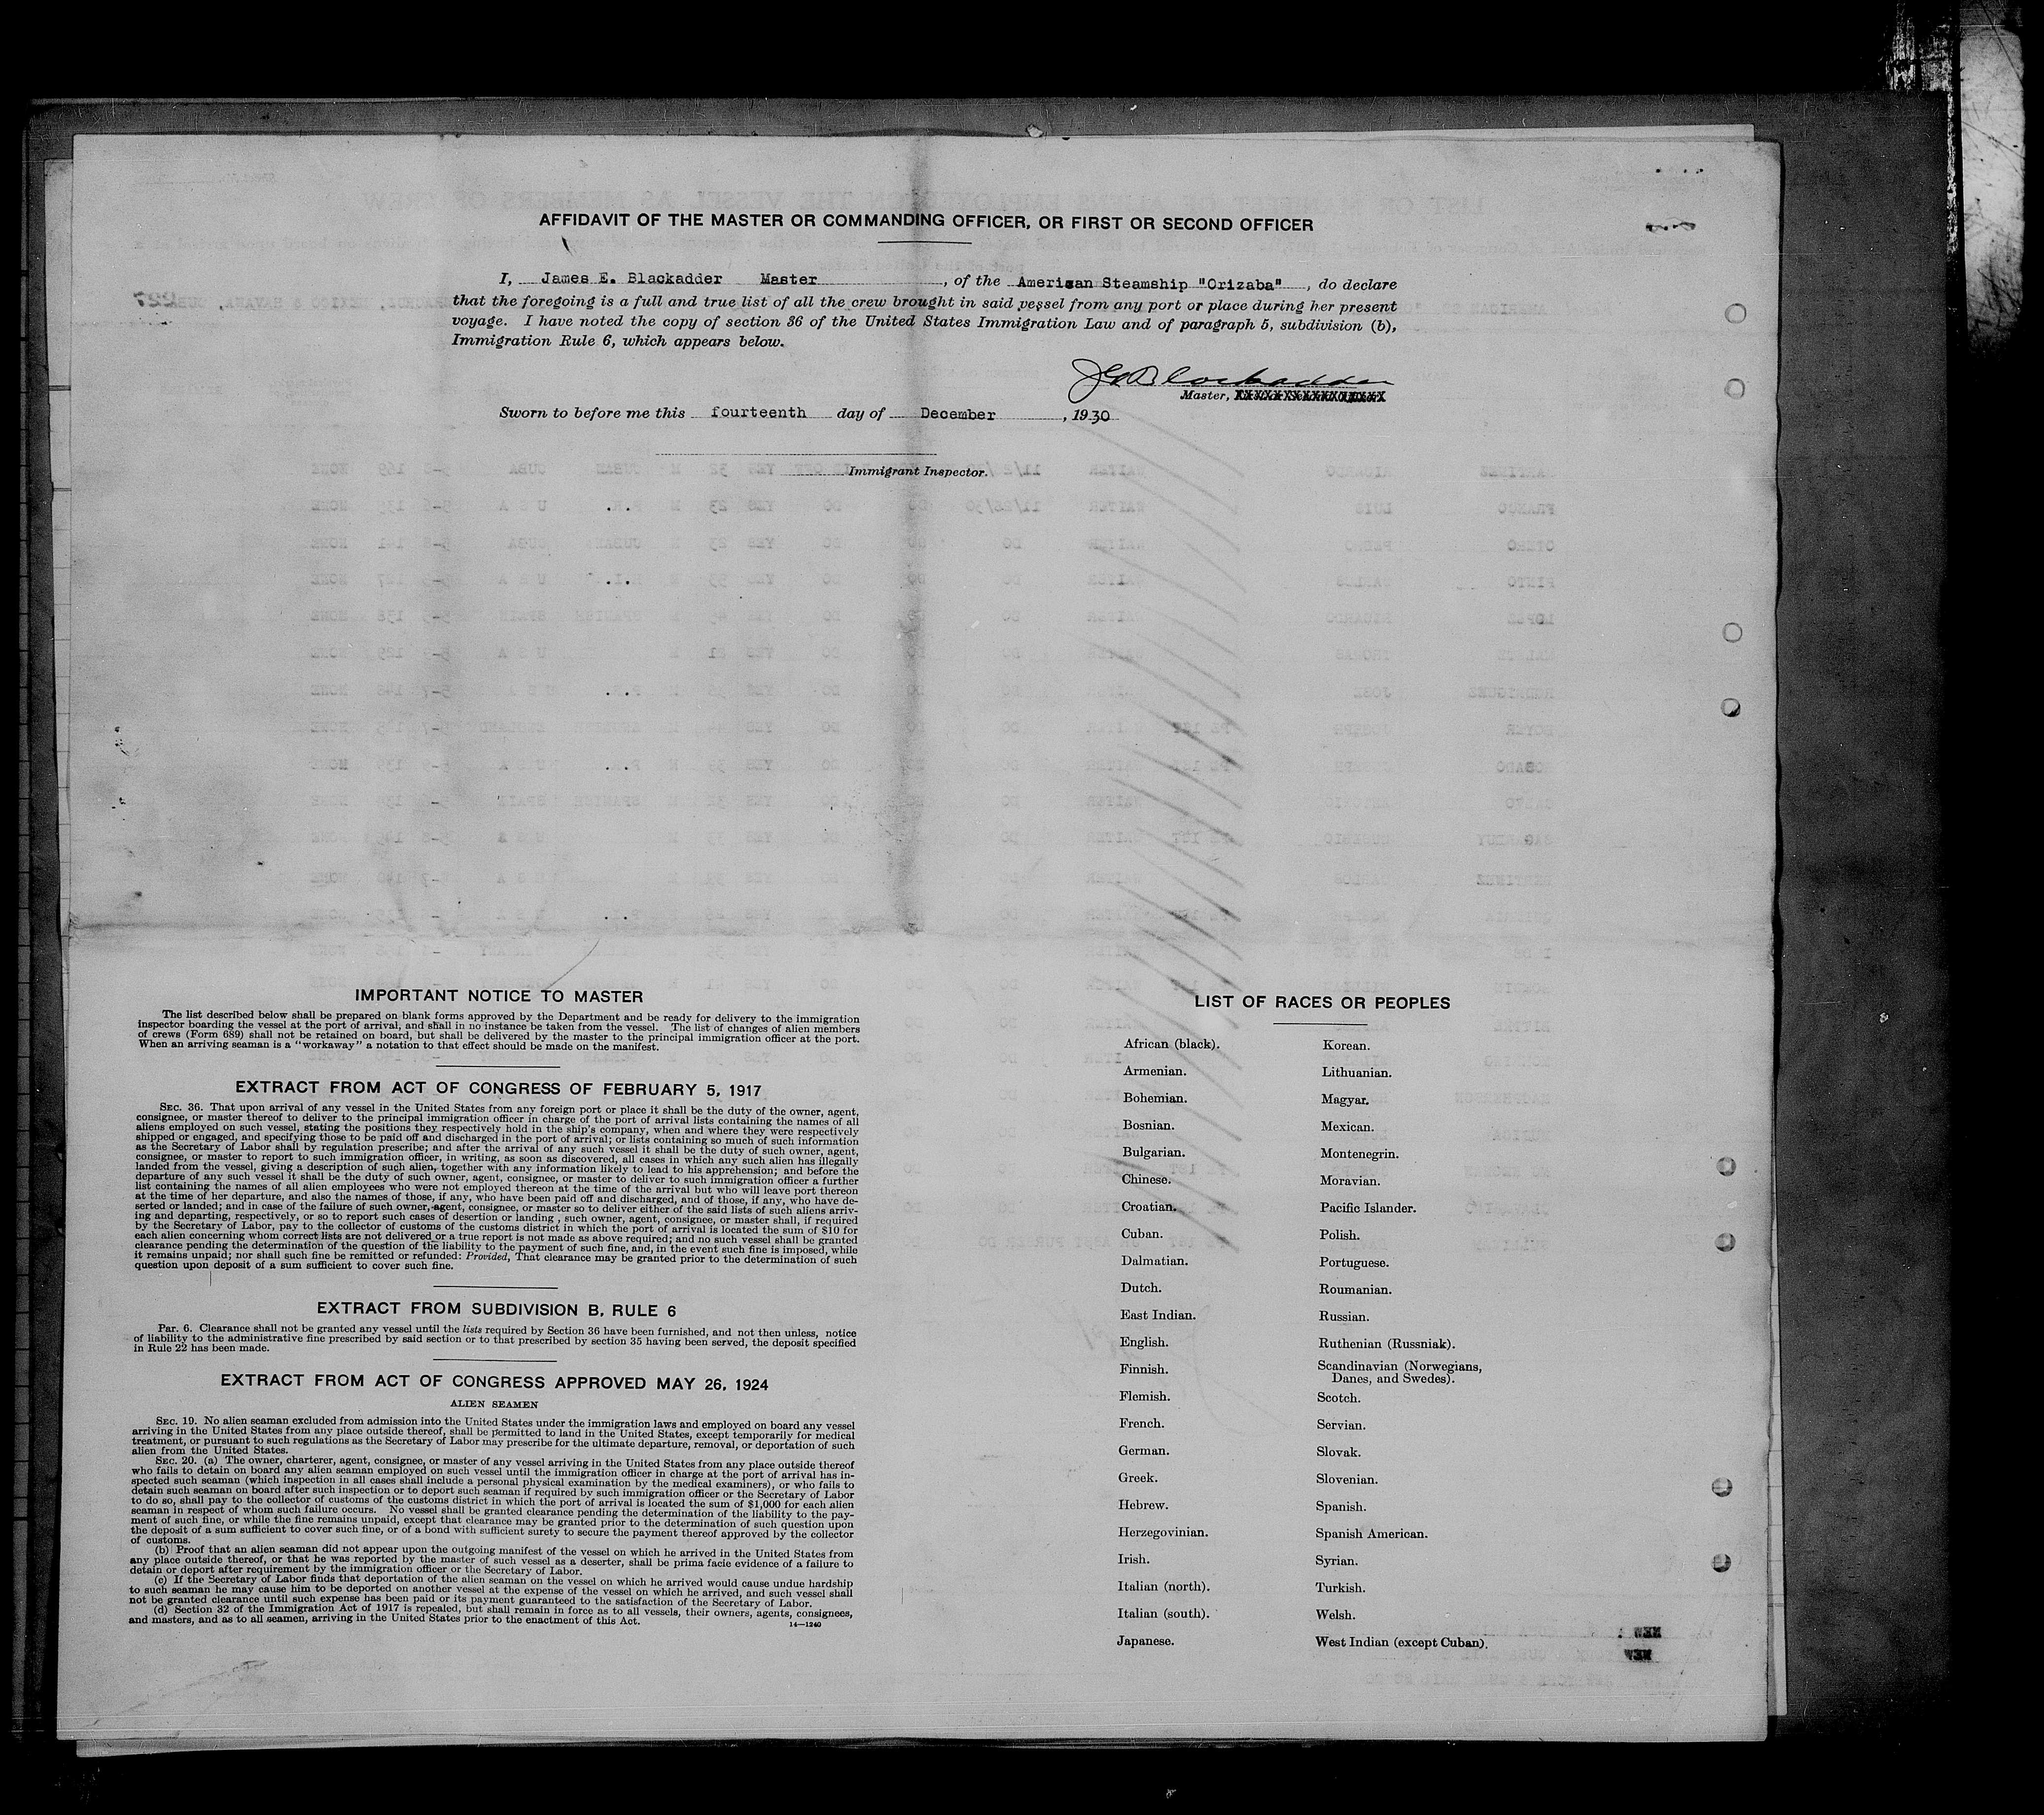 AFFIDAVIT OF THE MASTER OR COMMANDING OFFICER, OR FIRST OR SECOND OFFICER
I, James E. Blackadder Master, of the American Steamship "Orizaba", do declare
that the foregoing is a full and true list of all the crew brought in said vessel from any port or place during her present
voyage. I have noted the copy of section 36 of the United States Immigration Law and of paragraph 5, subdivision (b),
Immigration Rule 6, which appears below.
JE Blackadder
Master,
Sworn to before me this fourteenth day of December, 1930
Immigrant Inspector.
IMPORTANT NOTICE TO MASTER
The list described below shall be prepared on blank forms approved by the Department and be ready for delivery to the immigration
inspector boarding the vessel at the port of arrival, and shall in no instance be taken from the vessel. The list of changes of alien members
of crews (Form 689) shall not be retained on board, but shall be delivered by the master to the principal immigration officer at the port.
When an arriving seaman is a "workaway" a notation to that effect should be made on the manifest.
EXTRACT FROM ACT OF CONGRESS OF FEBRUARY 5, 1917
SEC. 36. That upon arrival of any vessel in the United States from any foreign port or place it shall be the duty of the owner, agent,
consignee, or master thereof to deliver to the principal immigration officer in charge of the port of arrival lists containing the names of all
aliens employed on such vessel, stating the positions they respectively hold in the ship's company, when and where they were respectively
shipped or engaged, and specifying those to be paid off and discharged in the port of arrival; or lists containing so much of such information
as the Secretary of Labor shall by regulation prescribe; and after the arrival of any such vessel it shall be the duty of such owner, agent,
consignee, or master to report to such immigration officer, in writing, as soon as discovered, all cases in which any such alien has illegally
landed from the vessel, giving a description of such alien, together with any information likely to lead to his apprehension; and before the
departure of any such vessel it shall be the duty of such owner, agent, consignee, or master to deliver to such immigration officer a further
list containing the names of all alien employees who were not employed thereon at the time of the arrival but who will leave port thereon
at the time of her departure, and also the names of those, if any, who have been paid off and discharged, and of those, if any, who have de-
serted or landed; and in case of the failure of such owner, agent, consignee, or master so to deliver either of the said lists of such aliens arriv-
ing and departing, respectively, or so to report such cases of desertion or landing, such owner, agent, consignee, or master shall, if required
by the Secretary of Labor, pay to the collector of customs of the customs district in which the port of arrival is located the sum of $10 for
each alien concerning whom correct lists are not delivered or a true report is not made as above required; and no such vessel shall be granted
clearance pending the determination of the question of the liability to the payment of such fine, and, in the event such fine is imposed, while
it remains unpaid; nor shall such fine be remitted or refunded: Provided, That clearance may be granted prior to the determination of such
question upon deposit of a sum sufficient to cover such fine.
EXTRACT FROM SUBDIVISION B, RULE 6
Par. 6. Clearance shall not be granted any vessel until the lists required by Section 36 have been furnished, and not then unless, notice
of liability to the administrative fine prescribed by said section or to that prescribed by section 35 having been served, the deposit specified
in Rule 22 has been made.
EXTRACT FROM ACT OF CONGRESS APPROVED MAY 26, 1924
ALIEN SEAMEN
SEC. 19. No alien seaman excluded from admission into the United States under the immigration laws and employed on board any vessel
arriving in the United States from any place outside thereof, shall be permitted to land in the United States, except temporarily for medical
treatment, or pursuant to such regulations as the Secretary of Labor may prescribe for the ultimate departure, removal, or deportation of such
alien from the United States.
SEC. 20. (a) The owner, charterer, agent, consignee, or master of any vessel arriving in the United States from any place outside thereof
who fails to detain on board any alien seaman employed on such vessel until the immigration officer in charge at the port of arrival has in-
spected such seaman (which inspection in all cases shall include a personal physical examination by the medical examiners), or who fails to
detain such seaman on board after such inspection or to deport such seaman if required by such immigration officer or the Secretary of Labor
to do so, shall pay to the collector of customs of the customs district in which the port of arrival is located the sum of $1,000 for each alien
seaman in respect of whom such failure occurs. No vessel shall be granted clearance pending the determination of the liability to the pay-
ment of such fine, or while the fine remains unpaid, except that clearance may be granted prior to the determination of such question upon
the deposit of a sum sufficient to cover such fine, or of a bond with sufficient surety to secure the payment thereof approved by the collector
of customs.
(b) Proof that an alien seaman did not appear upon the outgoing manifest of the vessel on which he arrived in the United States from
any place outside thereof, or that he was reported by the master of such vessel as a deserter, shall be prima facie evidence of a failure to
detain or deport after requirement by the immigration officer or the Secretary of Labor.
(c) If the Secretary of Labor finds that deportation of the alien seaman on the vessel on which he arrived would cause undue hardship
to such seaman he may cause him to be deported on another vessel at the expense of the vessel on which he arrived, and such vessel shall
not be granted clearance until such expense has been paid or its payment guaranteed to the satisfaction of the Secretary of Labor.
(d) Section 32 of the Immigration Act of 1917 is repealed, but shall remain in force as to all vessels, their owners, agents, consignees,
and masters, and as to all seamen, arriving in the United States prior to the enactment of this Act.
14—1240
LIST OF RACES OR PEOPLES
African (black).
Armenian.
Bohemian.
Bosnian.
Bulgarian.
Chinese.
Croatian.
Cuban.
Dalmatian.
Dutch.
East Indian.
English.
Finnish.
Flemish.
French.
German.
Greek.
Hebrew.
Herzegovinian.
Irish.
Italian (north).
Italian (south).
Japanese.
Korean.
Lithuanian.
Magyar.
Mexican.
Montenegrin.
Moravian.
Pacific Islander.
Polish.
Portuguese.
Roumanian.
Russian.
Ruthenian (Russniak).
Scandinavian (Norwegians,
Danes, and Swedes).
Scotch.
Servian.
Slovak.
Slovenian.
Spanish.
Spanish American.
Syrian.
Turkish.
Welsh.
West Indian (except Cuban).